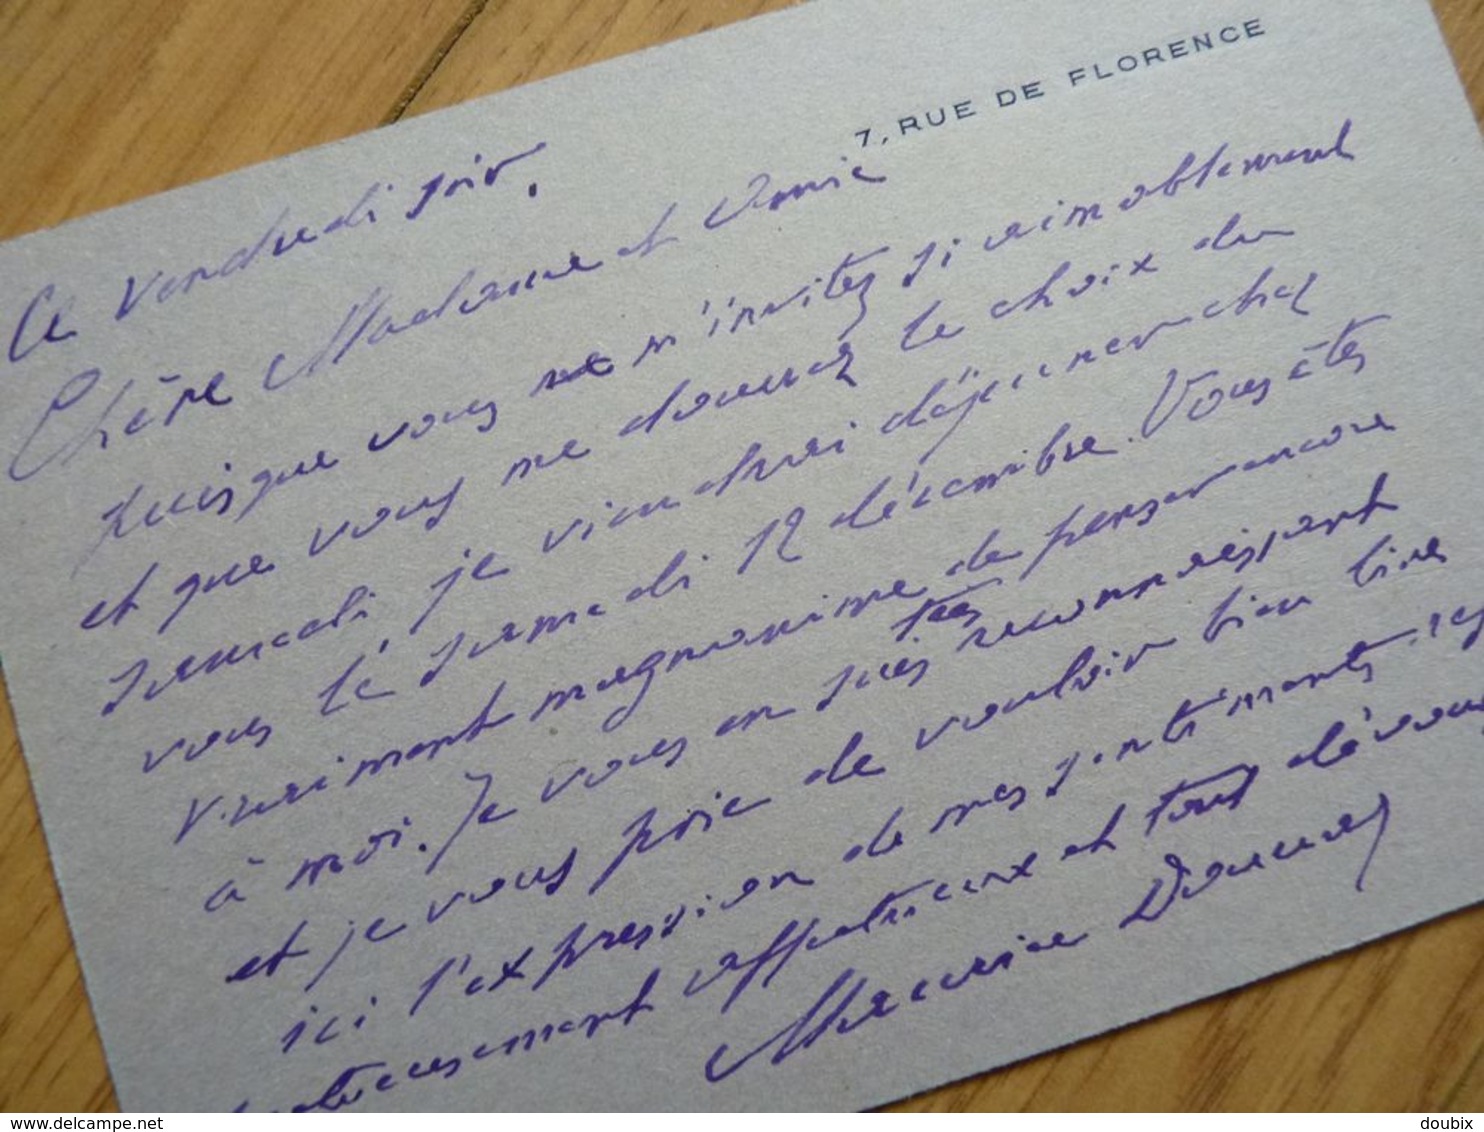 7, RUE DE FLORENCE
Ce vendredi soir.
Chère Madame et Amie
puisque vous m'invitez si aimablement
et que vous me donnez le choix du
samedi je viendrai déjeuner chez
vous le samedi 12 décembre. Vous êtes
vraiment magnanime de penser encore
à moi. Je vous en suis très reconnaissant
et je vous prie de vouloir bien lire
ici l'expression de mes sentiments res
pectueusement affectueux et tout dévoués
Maurice Donnay
delcampe.net
doubix